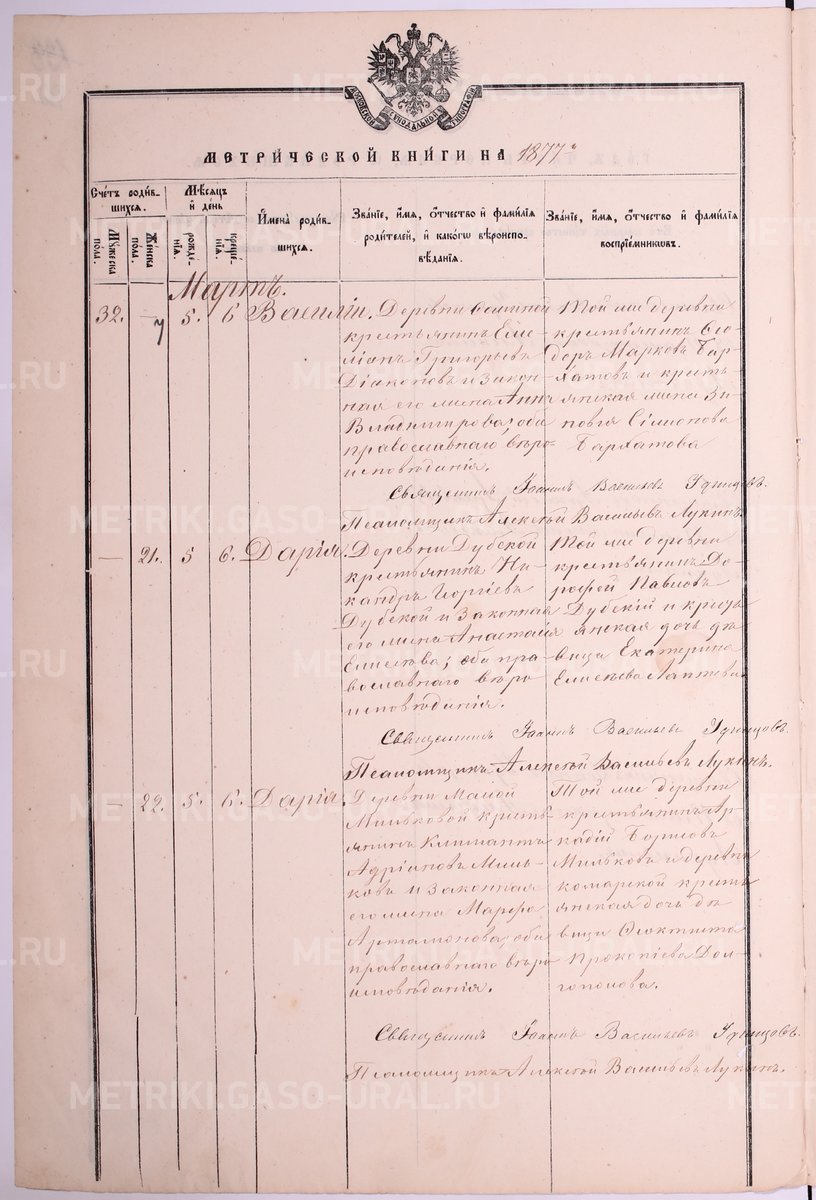 МОСКОВСКОЙ СѴНОДАЛЬНОЙ ТИПОГРАФІИ
МЕТРИ́ЧЕСКОЙ КНИ́ГИ НА 1877
Сче́тъ роди́в-
шихся.
Мѣ́сяцъ
и҆ де́нь
И҆мена̀ роди́в-
шихся.
Зва́нїе, и҆́мя, ѻ҆́тчество и҆ фами́лїя
роди́телей, и҆ како́гѡ вѣроиспо-
вѣ́данїя.
Зва́нїе, и҆́мя, ѻ҆́тчество и҆ фами́лїя
воспрїе́мникѡвъ.
Мꙋ́жеска
по́ла.
Же́нска
по́ла.
рожде́-
нїя.
креще́-
нїя.
Мартъ.
32. 5. 6 Василій. Деревни
крестьянинъ Еме-
ліанъ Григорьевъ
Діаконовъ и закон-
ная его жена Анна
Владимирова; оба
православнаго вѣро-
исповѣданія.
Той же деревни
крестьянинъ Ѳео-
доръ Марковъ Бар-
хатовъ и кресть-
янская жена Зи-
новія Сімеонова
Бархатова
Священникъ Іоаннъ Васильевъ Удинцовъ.
Псаломщикъ Алексѣй Васильевъ Лукинъ.
— 21. 5 6. Дарія. Деревни Дубской
крестьянинъ Ни-
кандръ Георгіевъ
Дубской и законная
его жена Анастасія
Елисеева; оба пра-
вославнаго вѣро
исповѣданія.
Той же деревни
крестьянинъ До-
рофей Павловъ
Дубскій и кресть
янская дочь дѣ
вица Екатерина
Елисеева Лаптева.
Священникъ Іоаннъ Васильевъ Удинцовъ.
Псаломщикъ Алексѣй Васильевъ Лукинъ.
— 22. 5. 6. Дарія. Деревни Малой
Мильковой кресть-
янинъ Климантъ
Адріановъ Миль-
ковъ и законная
его жена Марфа
Артамонова; оба
православнаго вѣро
исповѣданія.
Той же деревни
крестьянинъ Ар-
кадій Борисовъ
Мильковъ и деревни
Комарской кресть
янская дочь дѣ
вица Ѳеоктиста
Прокопіева Дол-
гополова.
Священникъ Іоаннъ Васильевъ Удинцовъ.
Псаломщикъ Алексѣй Васильевъ Лукинъ.
METRIKI.GASO-URAL.RU